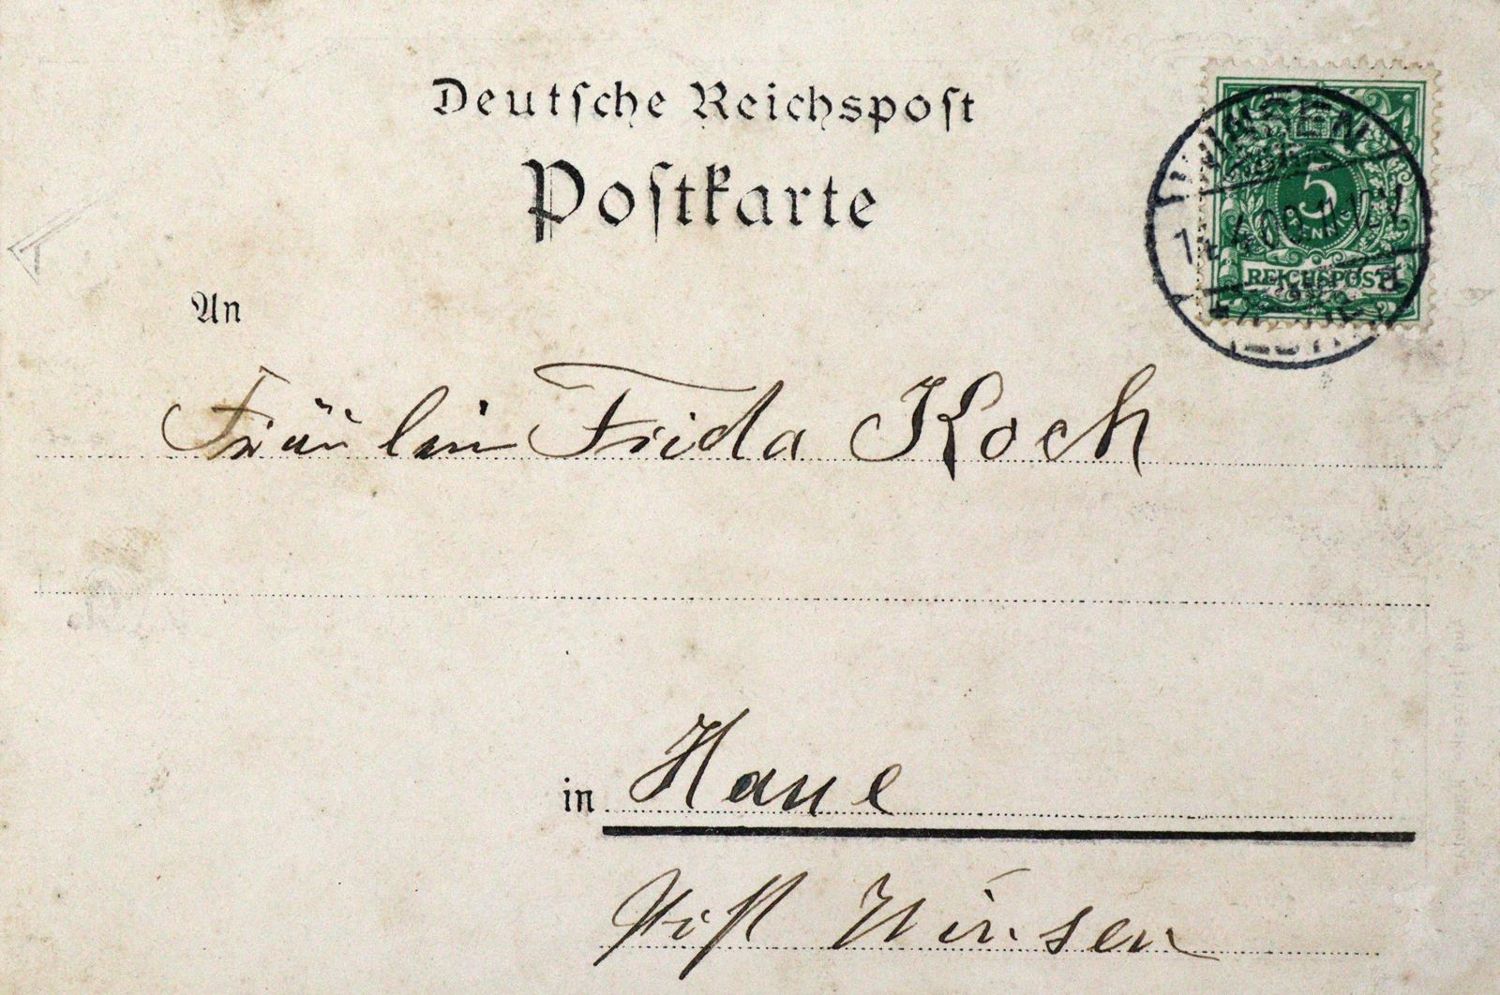 Deutsche Reichspost
Postkarte
WINSEN
5
PFENNIG
REICHSPOST
An
Fräulein Frida Koch
in Haue
Winsen